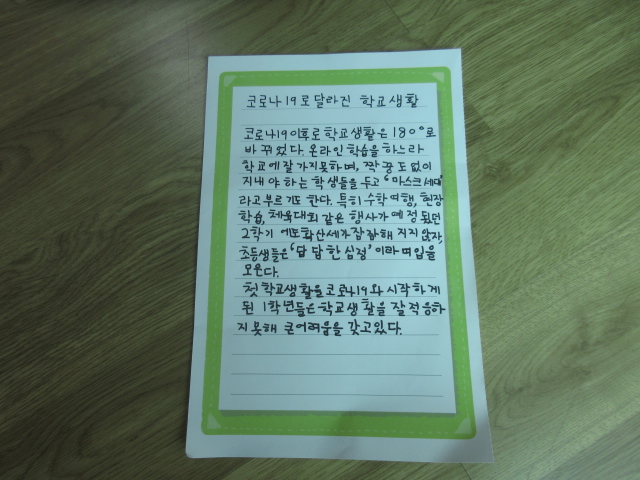 코로나19로 달라진 학교생활
코로나19이후로 학교생활은 180°로
바뀌었다. 온라인 학습을 하느라
학교에 잘 가지 못하며, 짝꿍도 없이
지내야 하는 학생들을 두고 '마스크 세대'
라고 부르기도 한다. 특히 수학여행, 현장
학습, 체육대회 같은 행사가 예정됐던
2학기에도 확산세가 잠잠해 지지 않자,
초등생들은 '답답한 심정' 이라며 입을
모은다.
첫 학교생활을 코로나19와 시작하게
된 1학년들은 학교생활을 잘 적응하
지 못해 큰 어려움을 갖고있다.